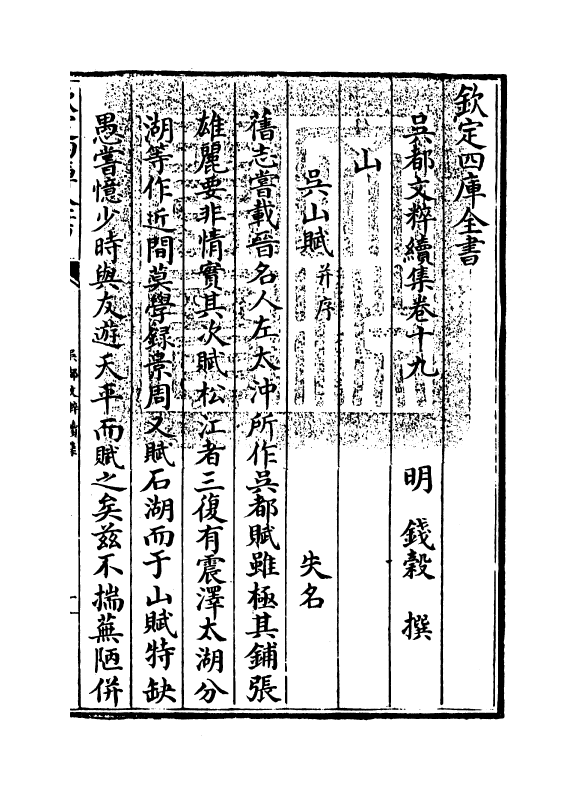 欽定四庫全書
吳都文粹續集卷十九
明　錢穀　撰
山
吳山賦并序　失名
舊志嘗載晉名人左太沖所作吳都賦雖極其鋪張
雄麗要非情實其次賦松江者三復有震澤太湖分
湖等作近間莫學録景周又賦石湖而于山賦特缺
愚嘗憶少時與友遊天平而賦之矣兹不揣蕪陋併